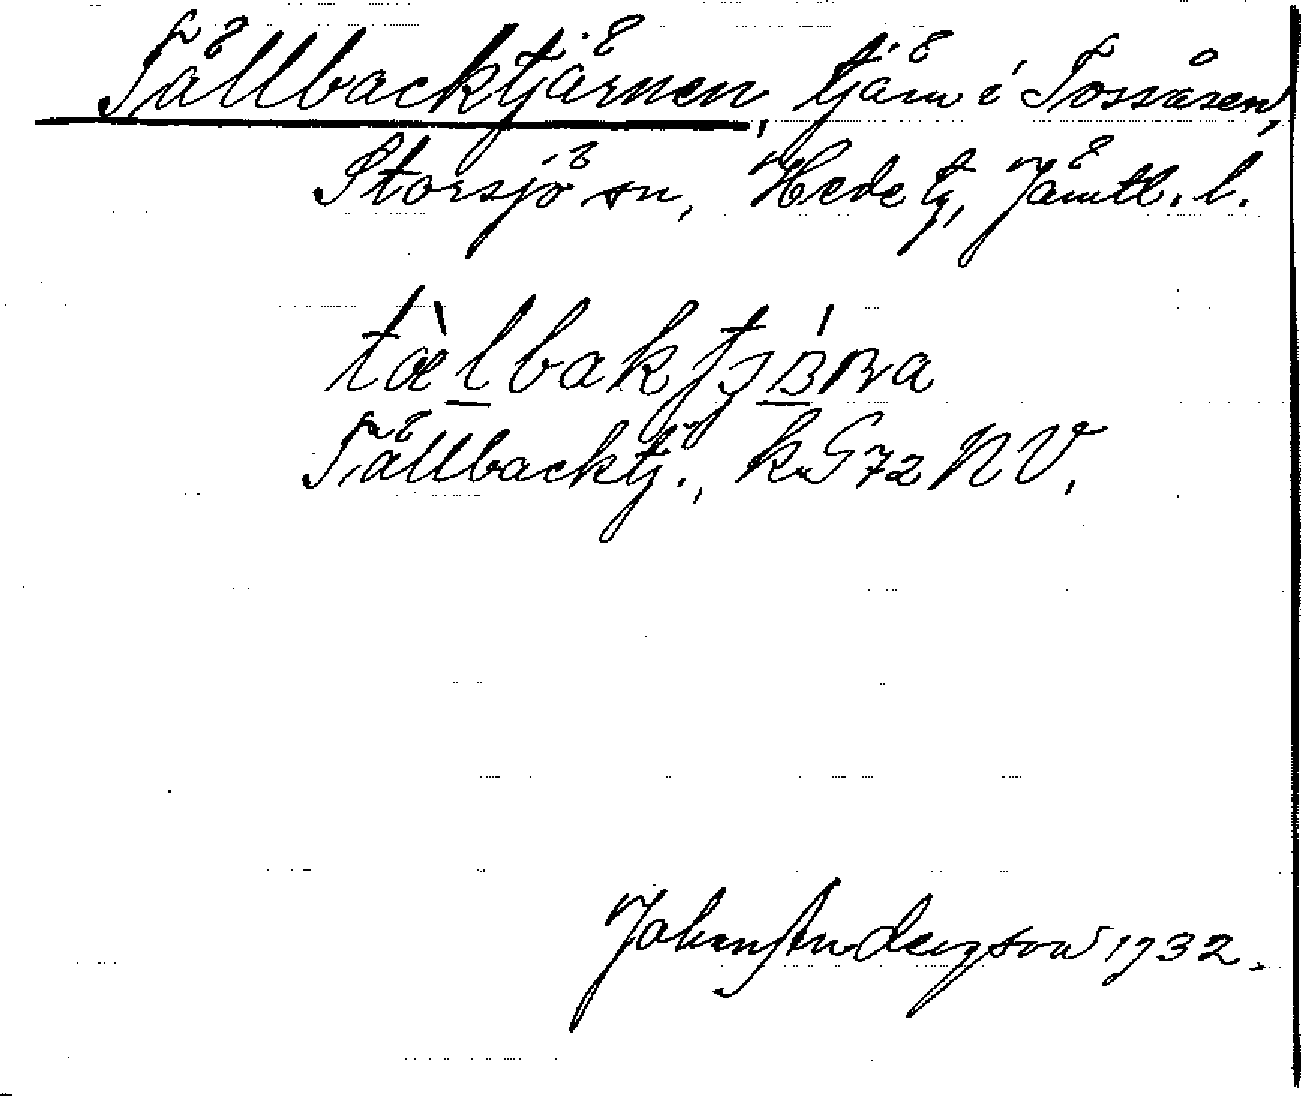 Tällbacktjärnen, tjärn i Tossåsen,
Storsjö sn, Hede tg, Jämtl. l.
Tällbacktj., kG72 NV.
John Anderson 1932.